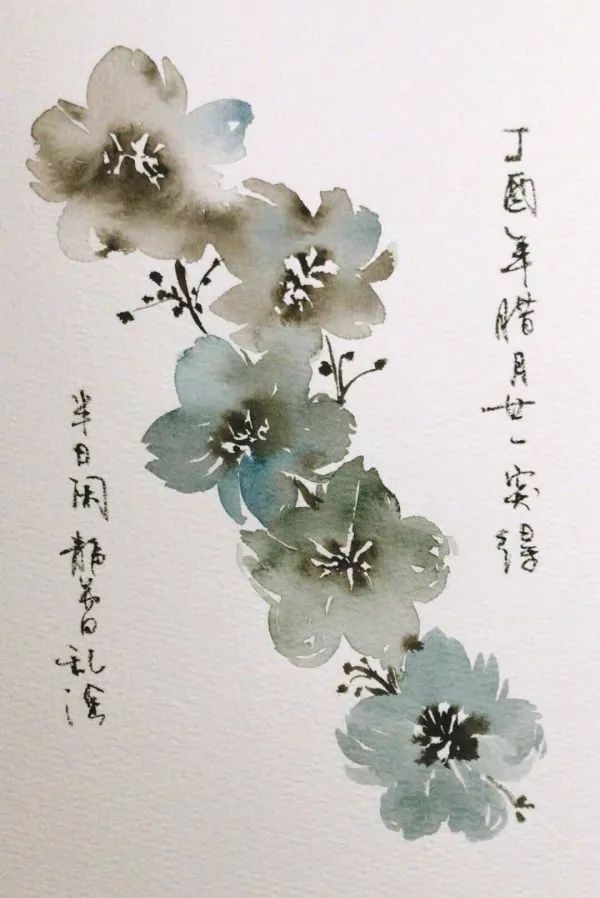 丁酉年腊月廿一突得
半日闲 静乱涂